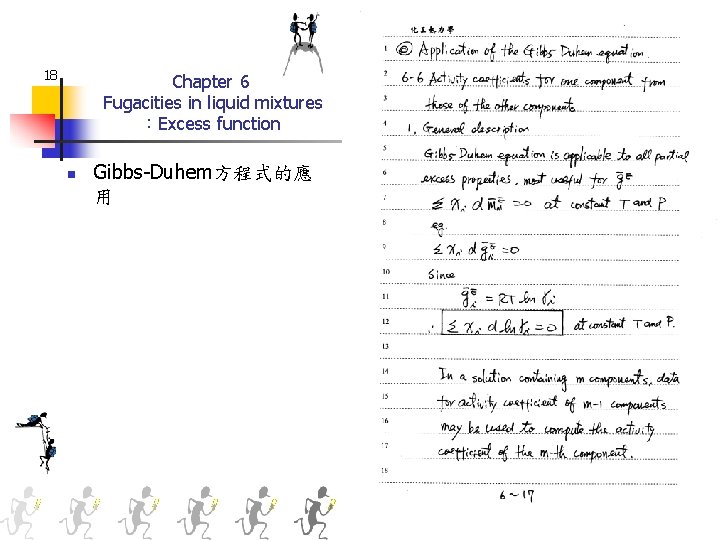 18
Chapter 6
Fugacities in liquid mixtures
：Excess function
Gibbs-Duhem方程式的應
用
化工熱力學
1 @ Application of the Gibbs Duhem equation
2 6-6 Activity coefficients for one component from
3 those of the other components
4 1. General description
5 Gibbs-Duhem equation is applicable to all partial
6 excess properties, most useful for ḡᴱ
7 ≤ xᵢ d m̄ᵢᴱ = 0 at constant T and P
8 eg.
9 ≤ xᵢ d ḡᵢᴱ = 0
10 Since
11 ḡᵢᴱ = RT ln γᵢ
12 ∴ ≤ xᵢ d ln γᵢ = 0 at constant T and P.
13
14 In a solution containing m components, data
15 for activity coefficient of m-1 components
16 may be used to compute the activity
17 coefficient of the m-th component.
18
6~17